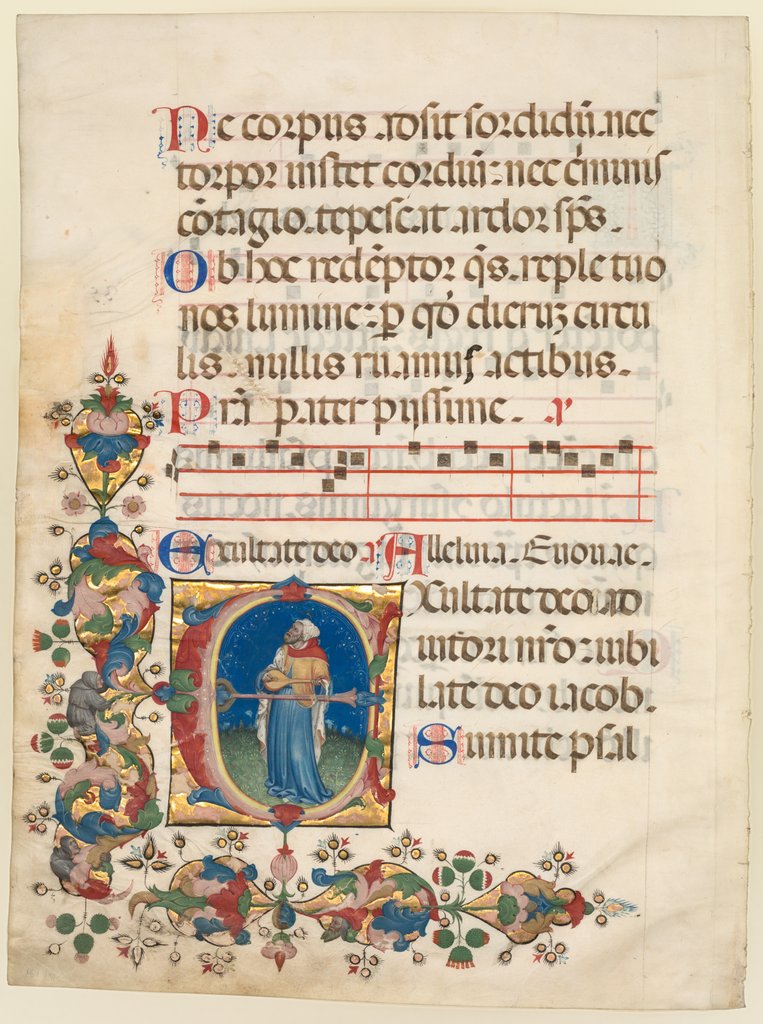 Ne corpus adsit sordidū. nec
torpor instet cordiū: nec c̄minis
cōtagio. tepescat ardor sp̄s.
Ob hoc redēptor q̄s. reple tuo
nos lumine: p̱ qd̄ dieruz circu
lis. nullis ruamus actibus.
Pr̄a pater pijssime. a
Exultate deo a Alleluia. Euouae.
EXultate deo ad
iutori nr̄o: iubi
late deo iacob.
Sumite psal